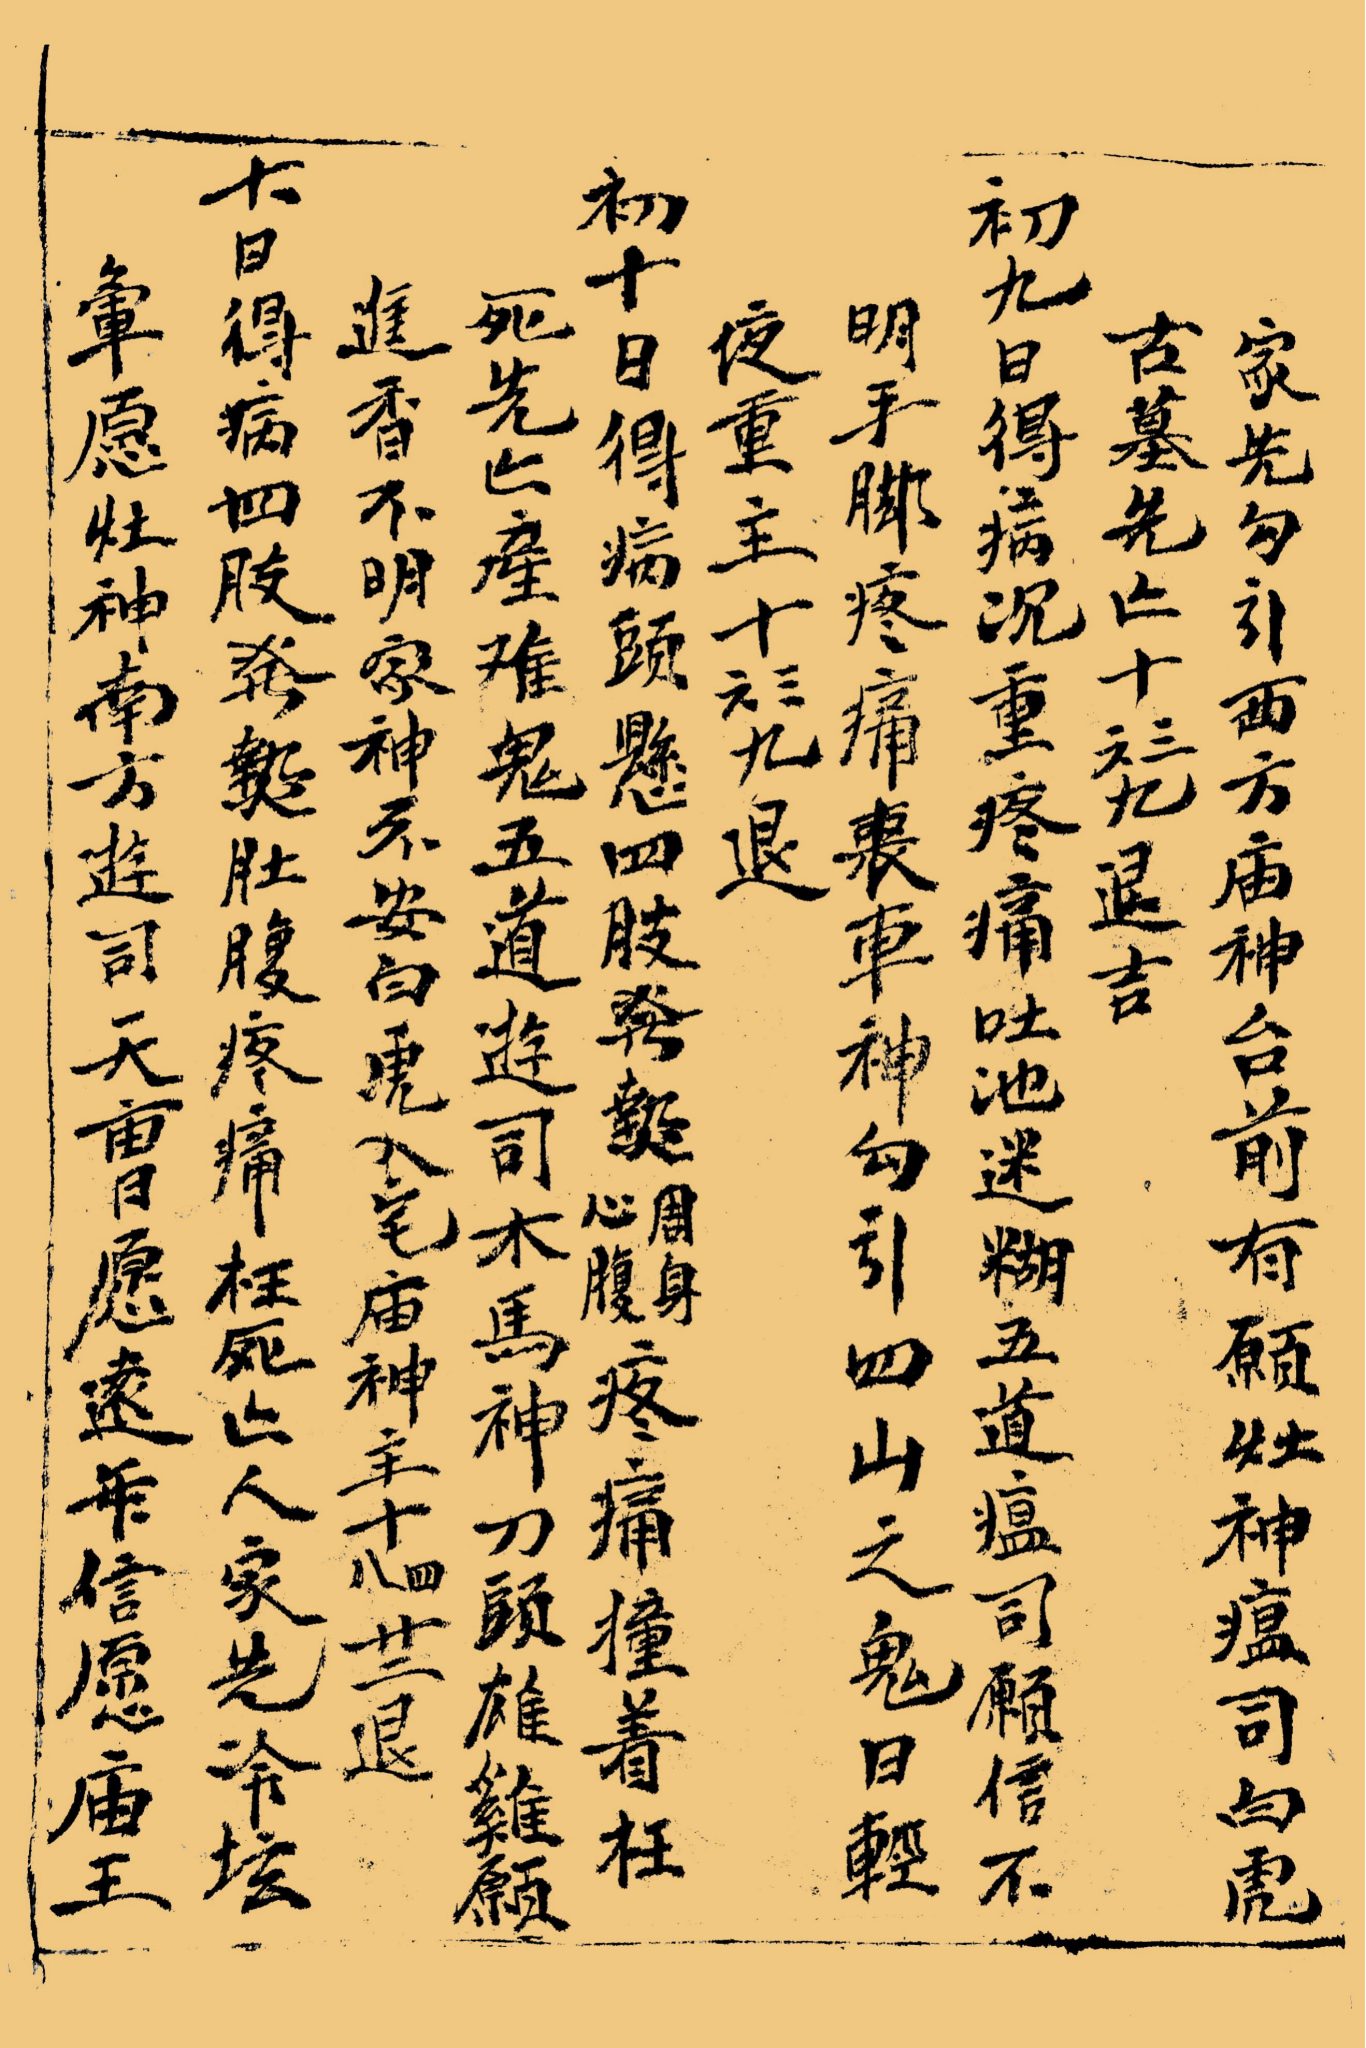 家先勾引西方庙神台前有願灶神瘟司白虎
古墓先亡十六三九退吉
初九日得病沉重疼痛吐池迷糊五道瘟司願信不
明手脚疼痛丧車神勾引四山之鬼日輕
夜重主十六三九退
初十日得病頭懸四肢発熱周身心腹疼痛撞着枉
死先亡産难鬼五道遊司木馬神刀頭雄雞願
進香不明家神不安白虎入宅庙神主十四八廿三退
十一日得病四肢発熱肚腹疼痛枉死亡人家先冷坛
愿灶神南方遊司天曹愿遠年信愿庙王